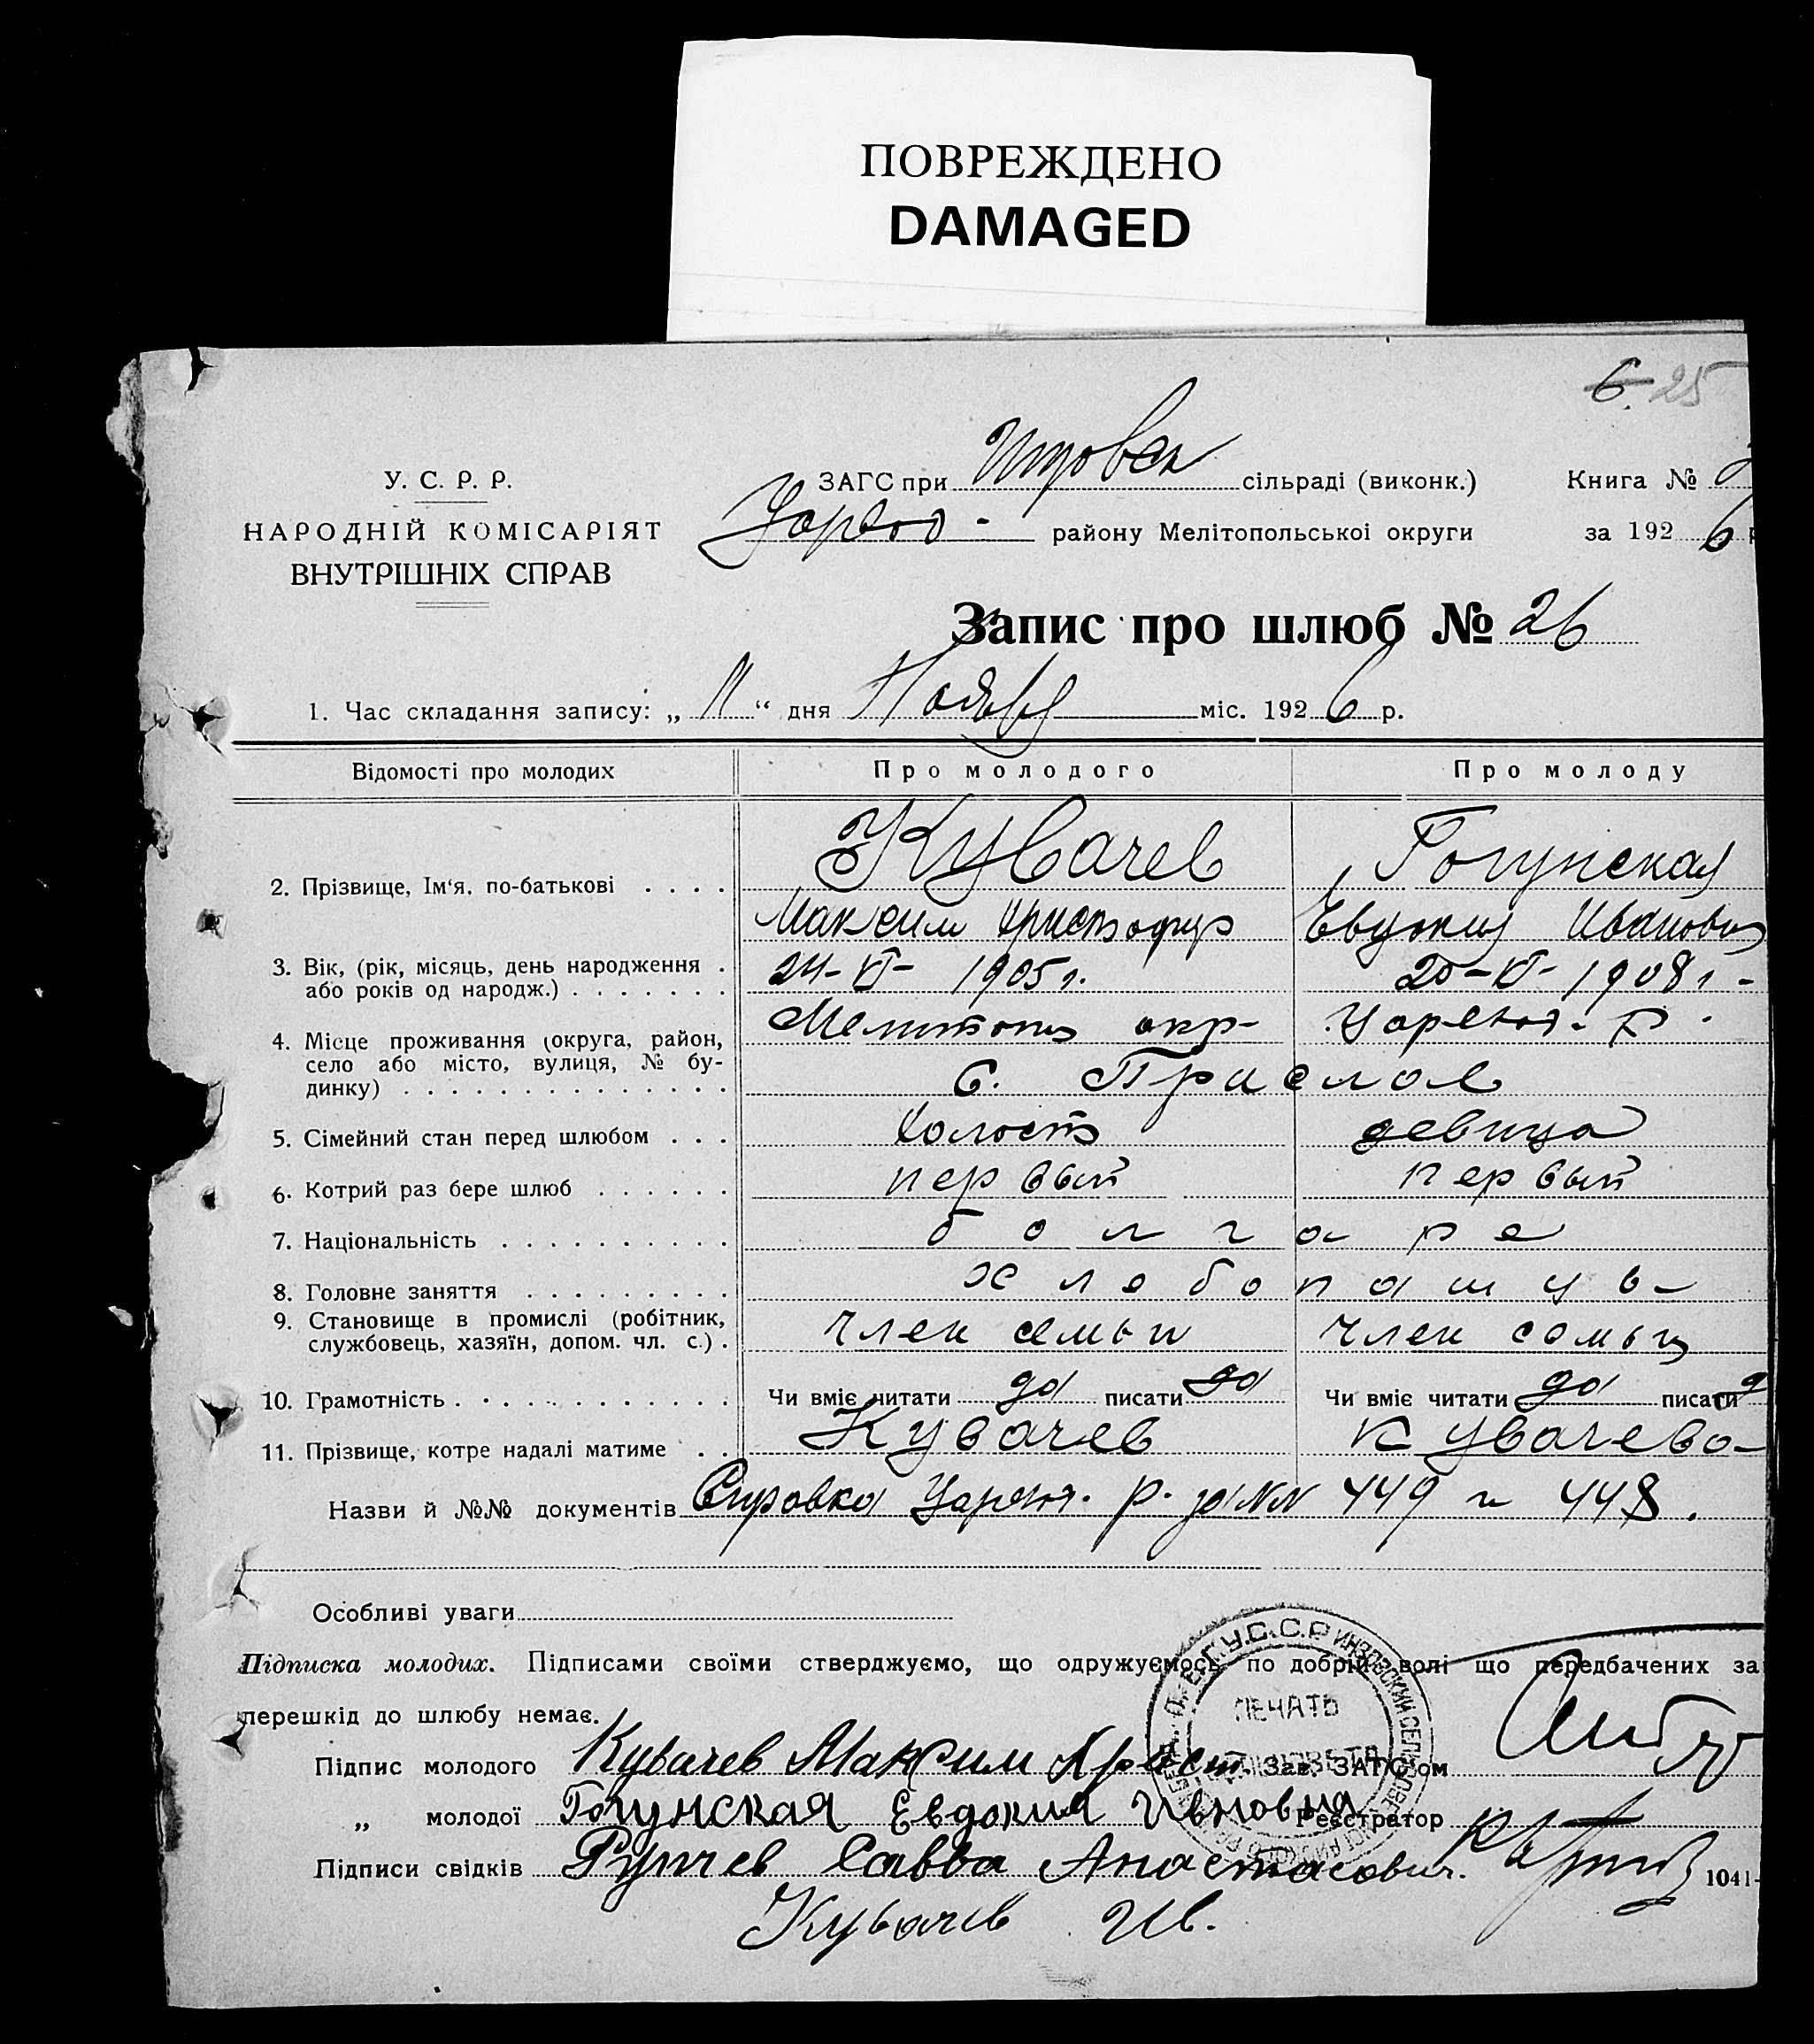 ПОВРЕЖДЕНО
DAMAGED
6. 25
У. С. Р. Р.
НАРОДНІЙ КОМІСАРІЯТ
ВНУТРІШНІХ СПРАВ
ЗАГС при сільраді (виконк.)
району Мелітопольськоі округи
Книга №
за 192 6 р
Запис про шлюб № 26
1. Час складання запису: „ 11 “ дня Ноября міс. 192 6 р.
Відомості про молодих Про молодого Про молоду
2. Прізвище, Ім‘я, по-батькові . . . . Кувачев Гогунская
Максим Христофор Евдокия Ивановна
3. Вік, (рік, місяць, день народження . 24-VI- 1905 г. 20-VI- 1908 г -
або років од народж.) . . . . . . .
4. Місце проживання (округа, район, Мелитопол окр- р.
село або місто, вулиця, № бу- с. Преслав
динку) . . . . . . . . . . . . . .
5. Сімейний стан перед шлюбом . . . холост девица
6. Котрий раз бере шлюб . . . . . . первый первый
7. Національність . . . . . . . . . . болгаре
8. Головне заняття . . . . . . . . . хлебопашцы
9. Становище в промислі (робітник,
службовець, хазяїн, допом. чл. с.) . член семьи член семьи
10. Грамотність . . . . . . . . . . . . Чи вміє читати да писати да Чи вміє читати да писати д
11. Прізвище, котре надалі матиме . . Кувачев Кувачева
Назви й №№ документів Справка р. за NN 449 и 448.
Особливі уваги
Підписка молодих. Підписами своїми стверджуємо, що одружуємось по добрій волі що передбачених за
перешкід до шлюбу немає.
Підпис молодого Кувачев Максим Христ. Зав. ЗАГС'ом
„ молодої Гогунская Евдокия Ивновна Реєстратор
Підписи свідків Савва Анастасович. 1041-
Кувачев Ив.
У.С.С.Р
ПЕЧАТЬ